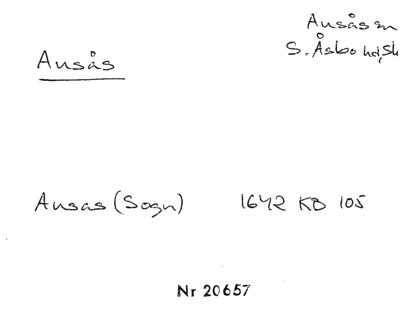 Ausås sn
S. Åsbo hd, Sk
Ausås
Ausas (Sogn) 1642 KB 105
Nr 20657